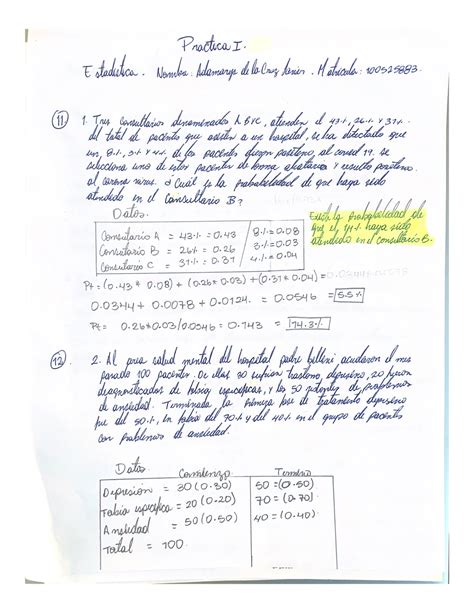 Practica I.
Estadistica. Nombre: Adamarys de la Cruz . Matricula: 100525883.
(11) 1. Tres Consultorios denominados A, B y C, atienden el 43%, 26% y 31%
del total de pacientes que asisten a un hospital, se ha detectado que
un, 8%, 3% y 4% de los pacientes dieron positivo, al covid 19. se
selecciona uno de estos pacientes de forma aleatoria y resulto positivo
al corona virus. ¿ Cual es la probabilidad de que haya sido
atendido en el Consultorio B?
Datos.
Consultorio A = 43% = 0.43 8% = 0.08
Consultorio B = 26% = 0.26 3% = 0.03
Consultorio C = 31% = 0.31 4% = 0.04
Existe la probabilidad de
que el haya sido
atendido en el consultorio B.
Pt = (0.43 * 0.08) + (0.26 * 0.03) + (0.31 * 0.04)
0.0344 + 0.0078 + 0.0124. = 0.0546 = 5.5%
Pt = 0.26*0.03/0.0546 = 0.143 = 14.3%
(12) 2. Al area salud mental del hospital padre billini acudieron el mes
pasado 100 pacientes. De ellas 30 sufrian trastorno, depresivo, 20 fueron
diagnosticados de fobias especificas, y los 50 restantes de problemas
de ansiedad. Terminada la primera fase de tratamiento depresivo
fue del 50%, en fobia del 70% y del 40% en el grupo de pacientes
con problemas de ansiedad.
Datos. Comienzo Termino
Depresion = 30 (0.30) 50 = (0.50)
Fobia especifica = 20 (0.20) 70 = (0.70)
Ansiedad = 50 (0.50) 40 = (0.40)
Total = 100.